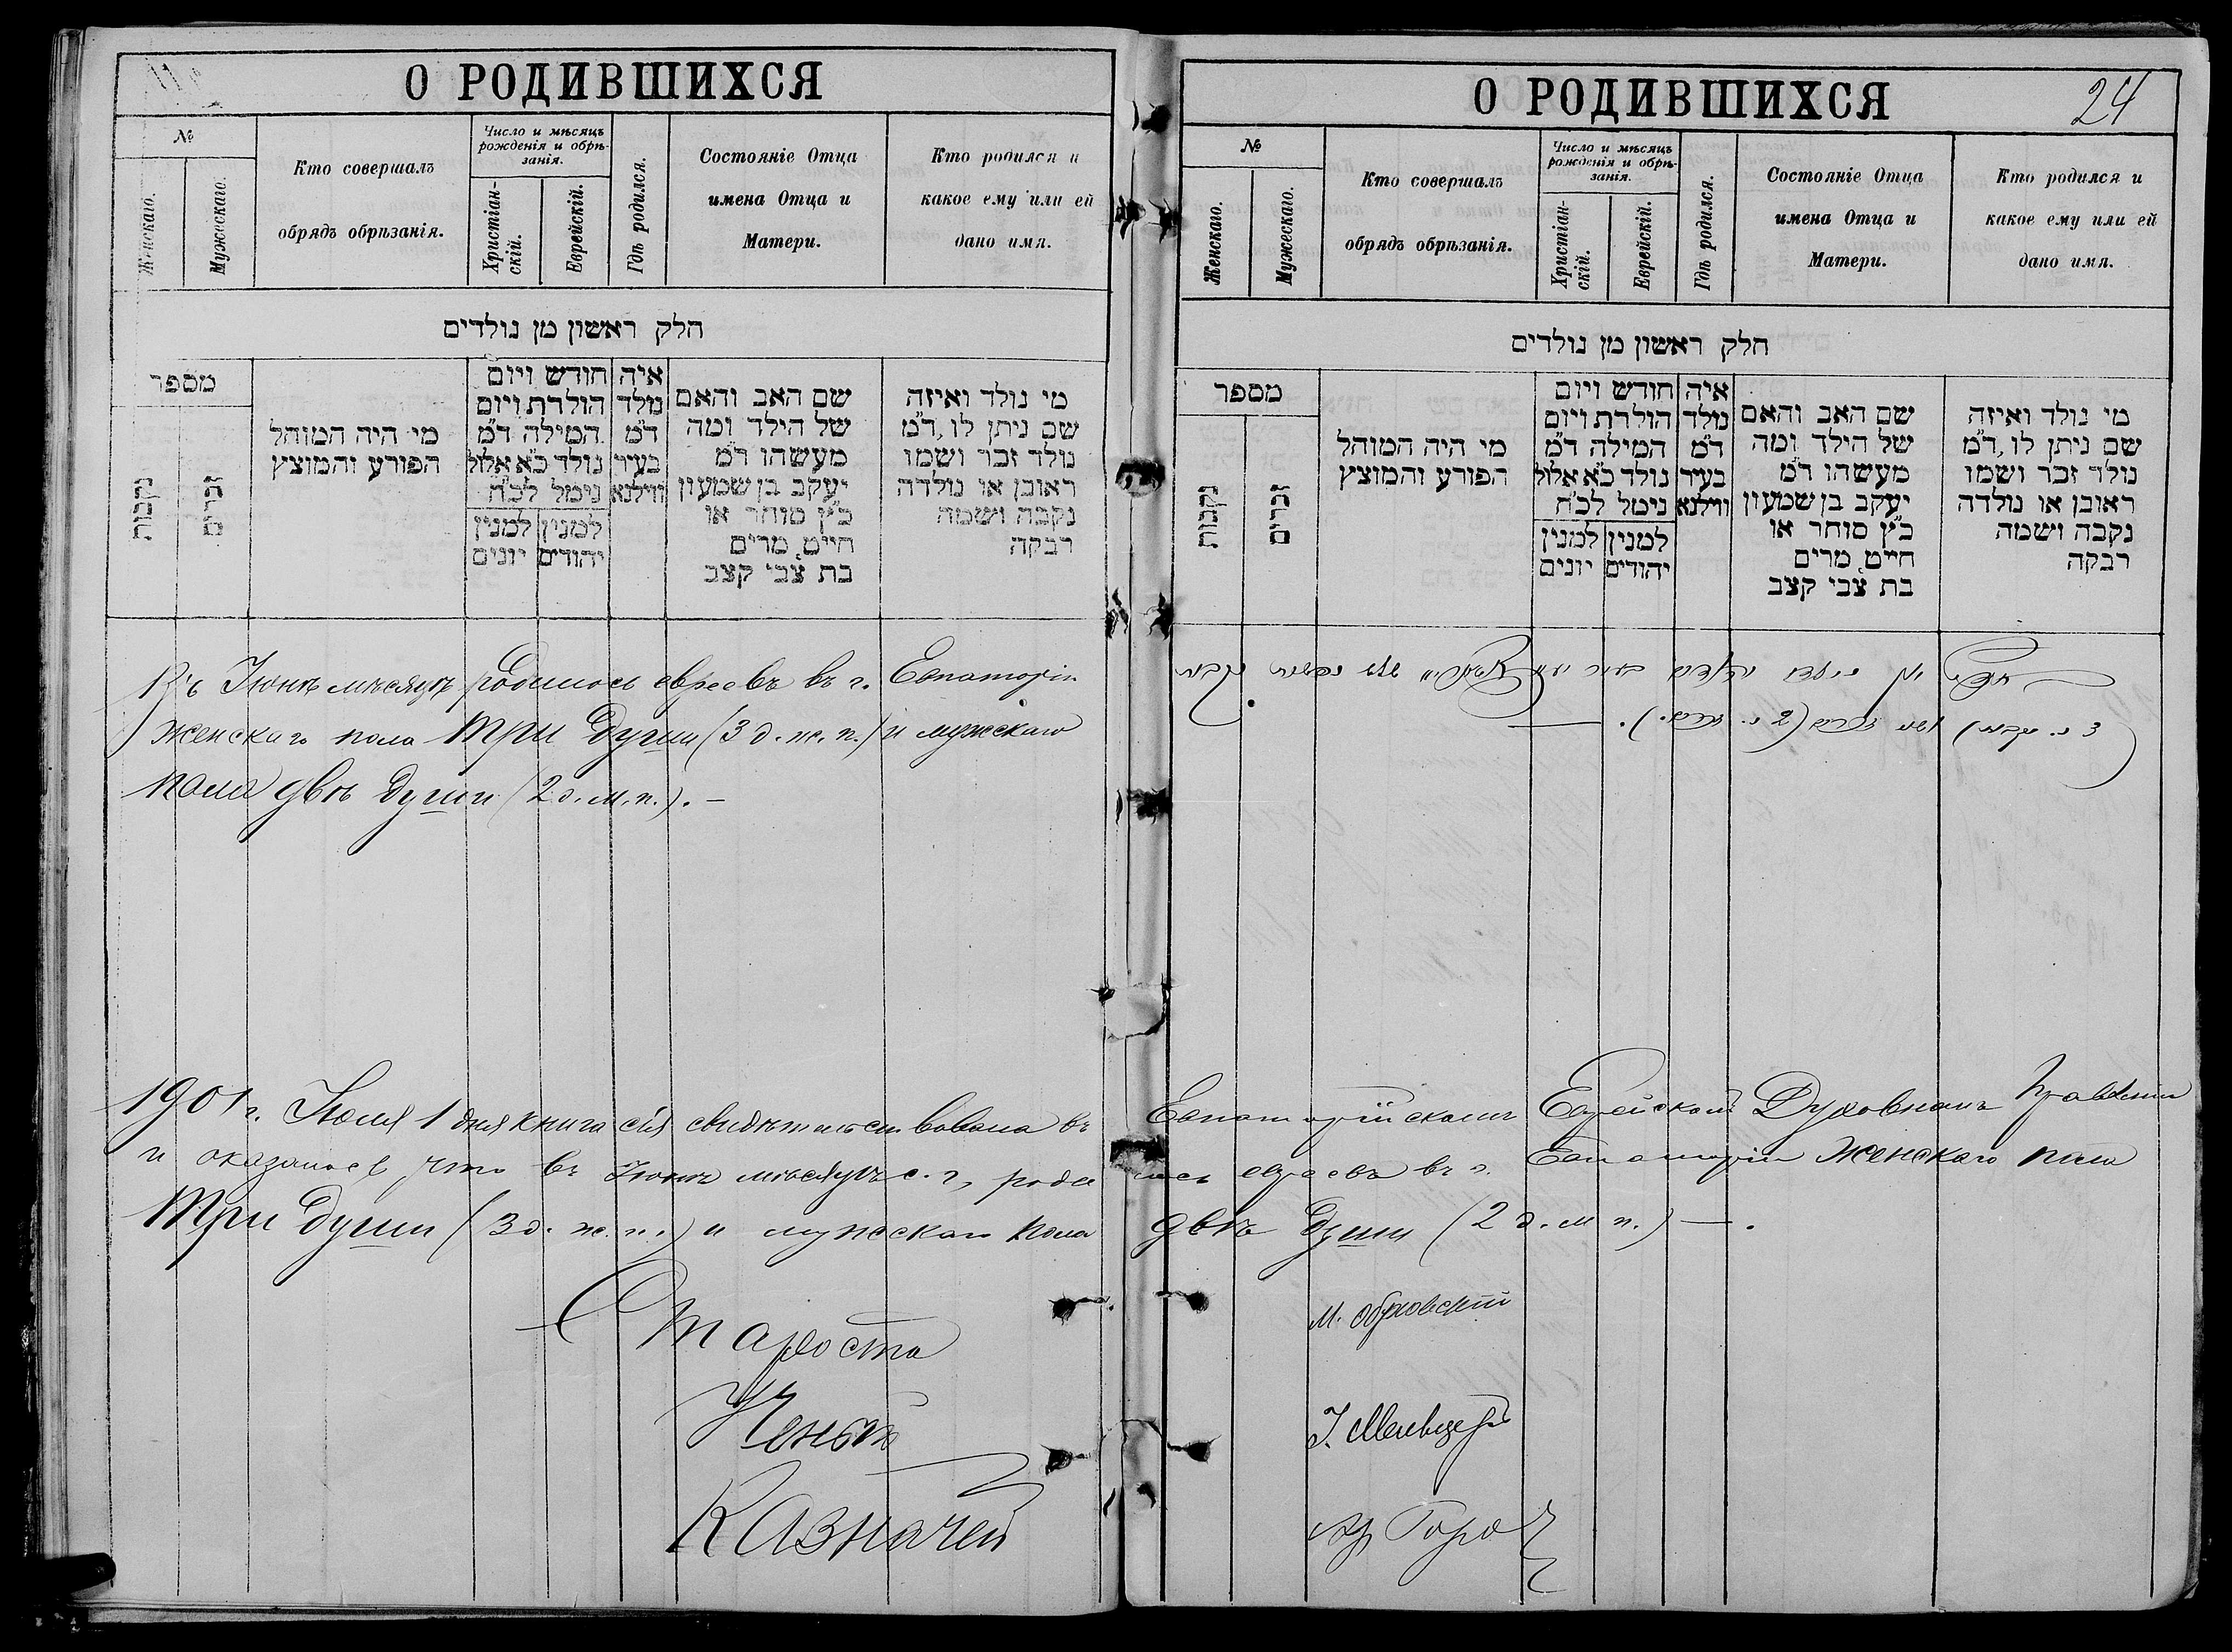 О РОДИВШИХСЯ
№
Женскаго.
Мужескаго.
Кто совершалъ
обрядъ обрѣзанія.
Число и мѣсяцъ
рожденія и обрѣ-
занія.
Христіан-
скій.
Еврейскій.
Гдѣ родился.
Состояніе Отца
имена Отца и
Матери.
Кто родился и
какое ему или ей
дано имя.
חלק ראשון מן נולדים
מספר
נקבות
זכרים
מי היה המוהל
הפורע והמוצץ
חודש ויום
הולדת ויום
המילה ד"מ
נולד כ"א אלול
נימל לכ"ח
למנין
יונים
למנין
יהודים
איה
נולד
ד"מ
בעיר
ווילנא
שם האב והאם
של הילד ומה
מעשהו ד"מ
יעקב בן שמעון
כ"ץ סוחר או
חייט, מרים
בת צבי קצב
מי נולד ואיזה
שם ניתן לו, ד"מ
נולד זכר ושמו
ראובן או נולדה
נקבה ושמה
רבקה
Въ Іюнѣ мѣсяцѣ родилось евреевъ въ г. Евпаторіи
женскаго пола три души (3 д. ж. п.) и мужскаго
пола двѣ души (2 д. м. п.). —
1901 г. Іюля 1 дня книга сія свидѣтельствована въ
и оказалось, что въ Іюнѣ мѣсяцѣ с. г. роди
три души (3 д. ж. п.) и мужскаго пола
Староста
Ученый
Казначей
О РОДИВШИХСЯ
24
№
Женскаго.
Мужескаго.
Кто совершалъ
обрядъ обрѣзанія.
Число и мѣсяцъ
рожденія и обрѣ-
занія.
Христіан-
скій.
Еврейскій.
Гдѣ родился.
Состояніе Отца
имена Отца и
Матери.
Кто родился и
какое ему или ей
дано имя.
חלק ראשון מן נולדים
מספר
נקבות
זכרים
מי היה המוהל
הפורע והמוצץ
חודש ויום
הולדת ויום
המילה ד"מ
נולד כ"א אלול
נימל לכ"ח
למנין
יונים
למנין
יהודים
איה
נולד
ד"מ
בעיר
ווילנא
שם האב והאם
של הילד ומה
מעשהו ד"מ
יעקב בן שמעון
כ"ץ סוחר או
חייט, מרים
בת צבי קצב
מי נולד ואיזה
שם ניתן לו, ד"מ
נולד זכר ושמו
ראובן או נולדה
נקבה ושמה
רבקה
Евпаторійскомъ Еврейскомъ Духовномъ Правленіи
лось евреевъ въ г. Евпаторіи женскаго пола
двѣ души (2 д. м. п.) —.
М.